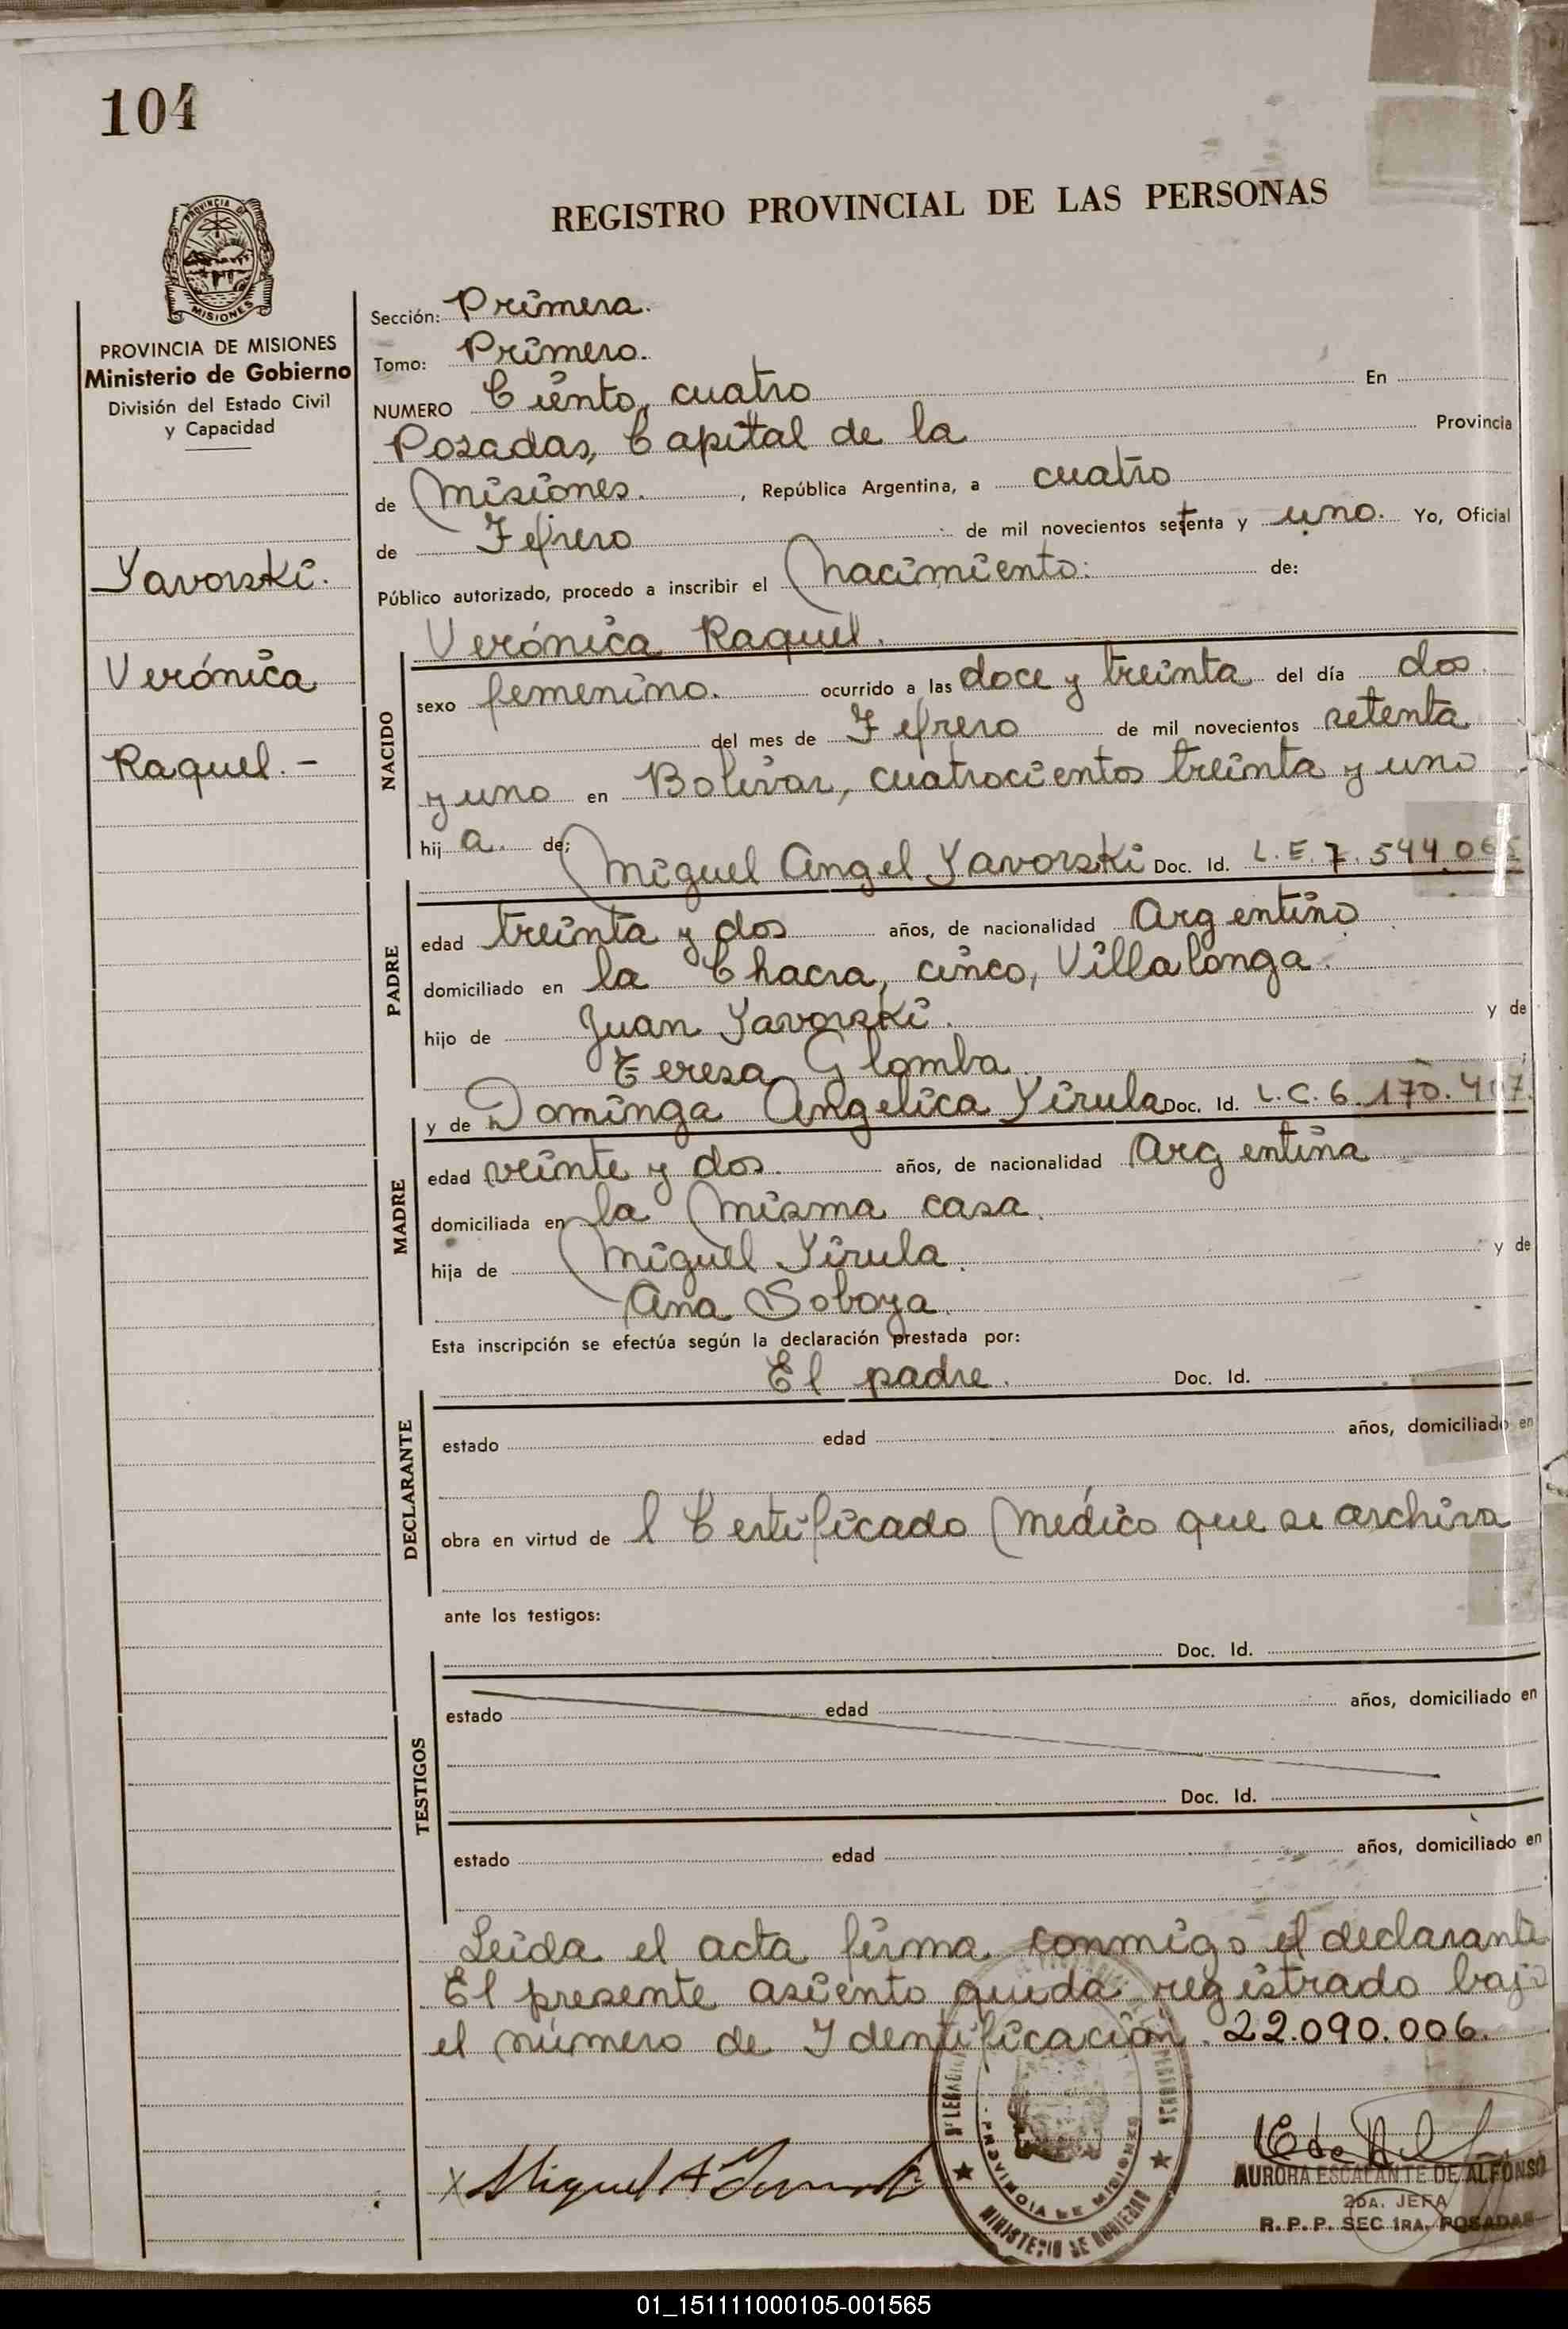 104
REGISTRO PROVINCIAL DE LAS PERSONAS
PROVINCIA DE
MISIONES
PROVINCIA DE MISIONES
Ministerio de Gobierno
División del Estado Civil
y Capacidad
Yavorski.
Verónica
Raquel.-
Sección: Primera.
Tomo: Primero.
NUMERO Ciento, cuatro En
Posadas, Capital de la Provincia
de Misiones. , República Argentina, a cuatro
de Febrero de mil novecientos setenta y uno. Yo, Oficial
Público autorizado, procedo a inscribir el Nacimiento: de:
Verónica Raquel.
NACIDO
sexo femenino. ocurrido a las doce y treinta del día dos.
del mes de Febrero de mil novecientos setenta
y uno en Bolívar, cuatrocientos treinta y uno
hij a. de: Miguel Angel Yavorski Doc. Id. L.E. 7.544.065
PADRE
edad treinta y dos años, de nacionalidad Argentino
domiciliado en la Chacra, cinco, Villalonga.
hijo de Juan Yavorski. y de
Teresa Glomba.
y de Dominga Angelica Yirula Doc. Id. L.C. 6.170.4 7.
MADRE
edad veinte y dos. años, de nacionalidad Argentina
domiciliada en la misma casa.
hija de Miguel Yirula. y de
Ana Soboya.
Esta inscripción se efectúa según la declaración prestada por:
El padre. Doc. Id.
DECLARANTE
estado edad años, domiciliado en
obra en virtud de l Certificado Médico que se archiva
ante los testigos:
Doc. Id.
TESTIGOS
estado edad años, domiciliado en
Doc. Id.
estado edad años, domiciliado en
Leida el acta firma conmigo el declarante
El presente asiento queda registrado bajo
el número de Identificación. 22.090.006.
PROVINCIA DE MISIONES
MINISTERIO DE GOBIERNO
x Miguel A
AURORA ESCALANTE DE ALFONSO
2DA. JEFA
R.P.P. SEC 1RA. POSADAS
01_151111000105-001565